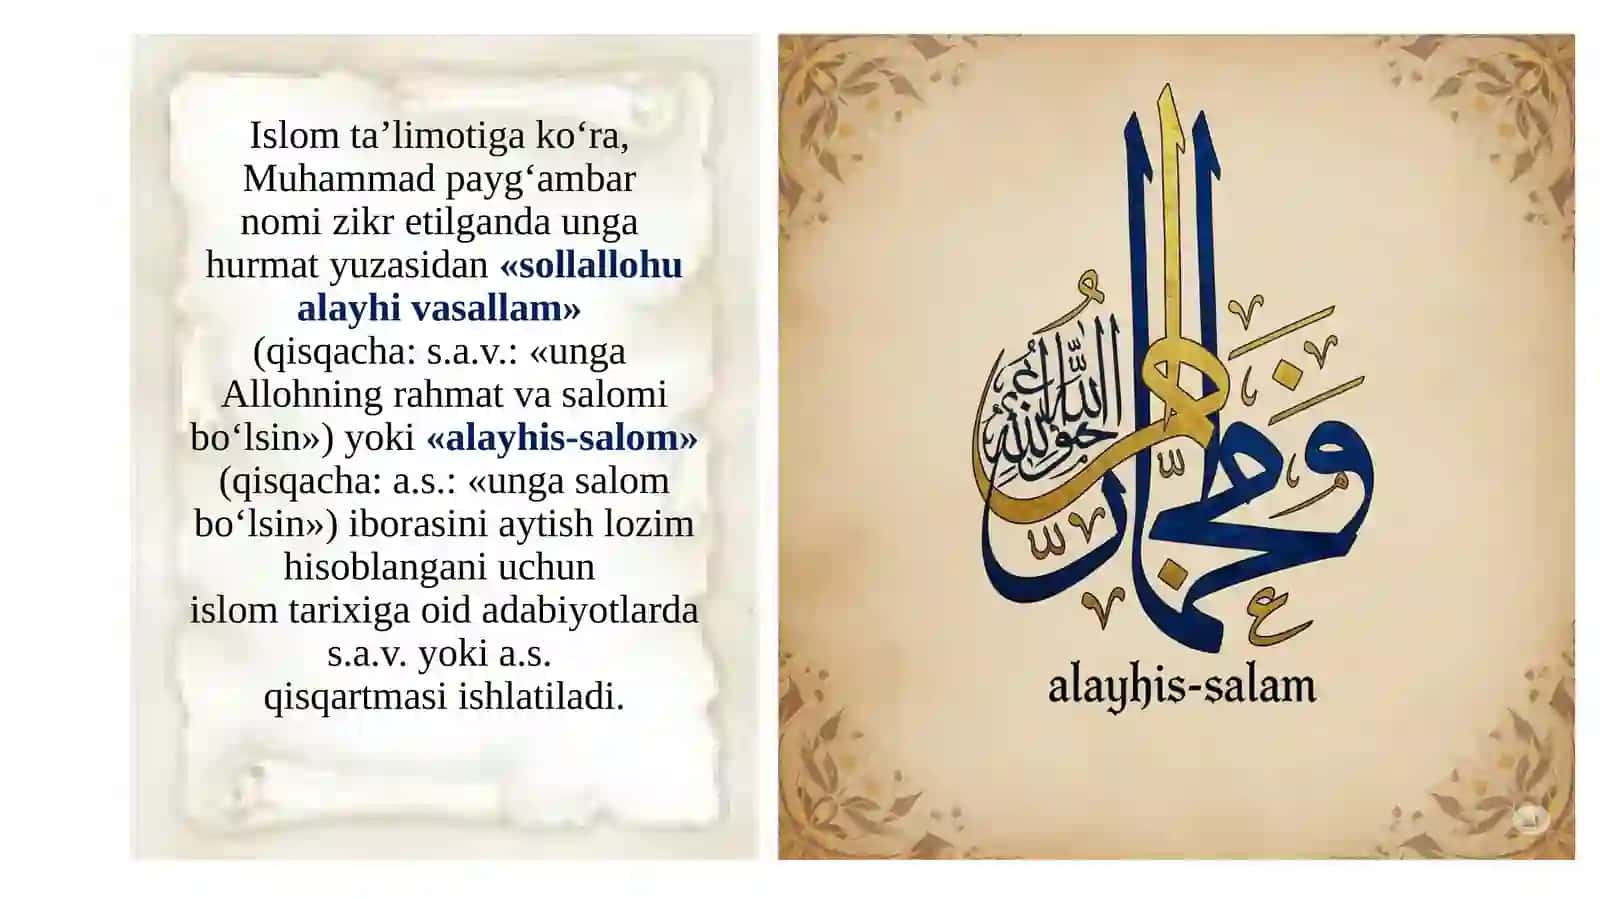 Islom ta’limotiga ko‘ra,
Muhammad payg‘ambar
nomi zikr etilganda unga
hurmat yuzasidan «sollallohu
alayhi vasallam»
(qisqacha: s.a.v.: «unga
Allohning rahmat va salomi
bo‘lsin») yoki «alayhis-salom»
(qisqacha: a.s.: «unga salom
bo‘lsin») iborasini aytish lozim
hisoblangani uchun
islom tarixiga oid adabiyotlarda
s.a.v. yoki a.s.
qisqartmasi ishlatiladi.
alayhis-salam